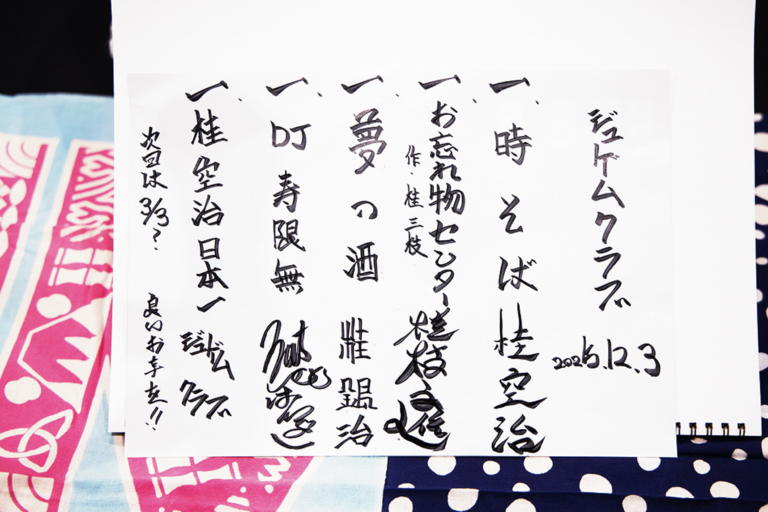 ジュゲムクラブ
2025.12.3
一、時そば 桂空治
一、お忘れ物センター
作・桂三枝
一、夢の酒 治
一、DJ寿限無
一、桂空治日本一 ジュゲムクラブ
次回は3/3?
良いお年を!!